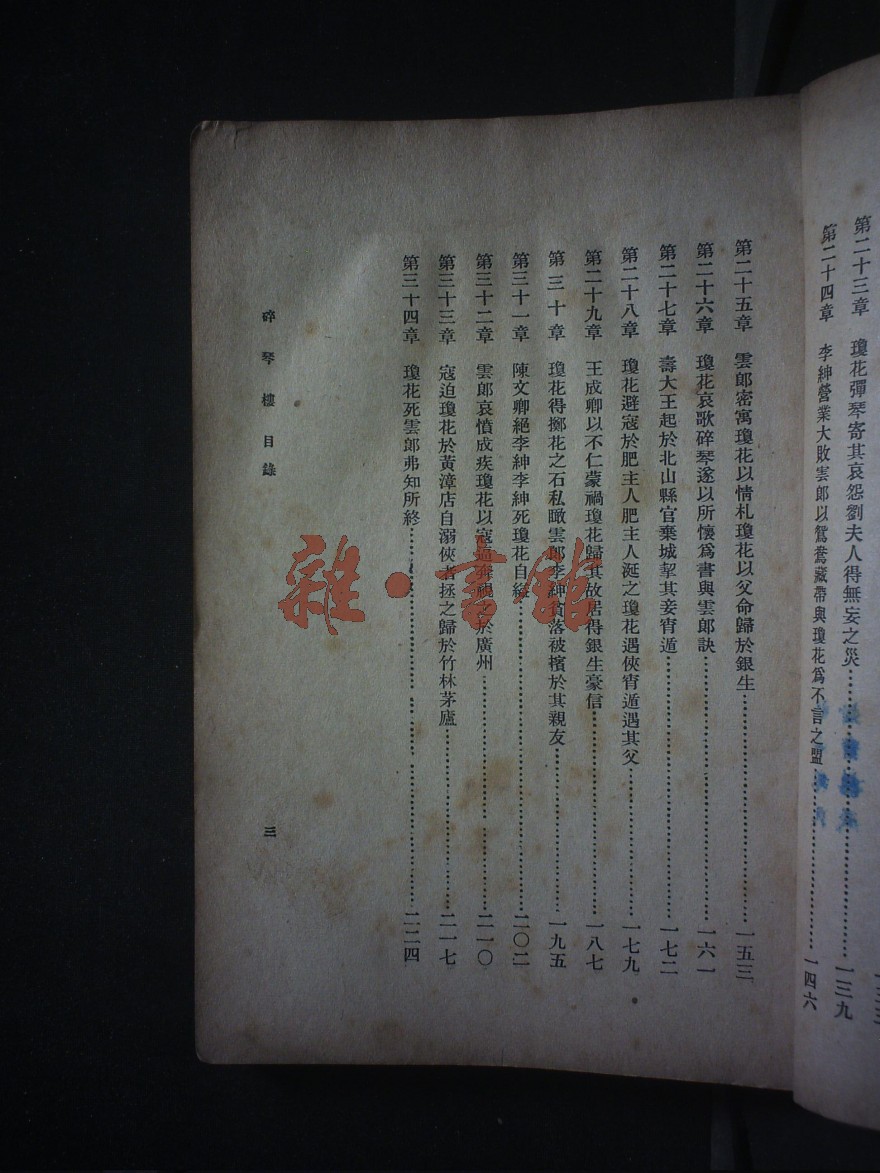 第二十三章 瓊花彈琴寄其哀怨劉夫人得無妄之災……一三九
第二十四章 李紳營業大敗雲郎以鴛鴦藏帶與瓊花爲不言之盟……一四六
第二十五章 雲郎密寓瓊花以情札瓊花以父命歸於銀生……一五三
第二十六章 瓊花哀歌碎琴遂以所懷爲書與雲郎訣……一六一
第二十七章 壽大王起於北山縣官棄城挈其妾宵遁……一七二
第二十八章 瓊花避寇於肥主人肥主人涎之瓊花遇俠宵遁遇其父……一七九
第二十九章 王成卿以不仁蒙禍瓊花歸其故居得銀生豪信……一八七
第三十章 瓊花得擲花之石私瞰雲郎李紳貧落被擯於其親友……一九五
第三十一章 陳文卿絕李紳李紳死瓊花自縊……二〇二
第三十二章 雲郎哀憤成疾瓊花以寇逼奔視之於廣州……二一〇
第三十三章 寇迫瓊花於黃漳店自溺俠者拯之歸於竹林茅廬……二一七
第三十四章 瓊花死雲郎弗知所終……二二四
碎琴樓目錄 三
雜·書館